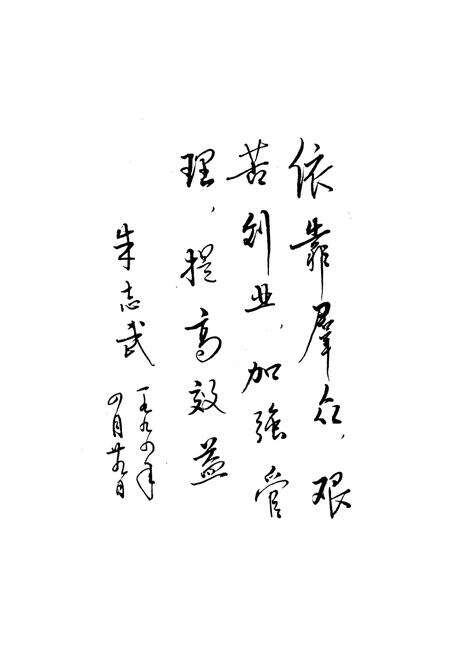 依靠群众，艰
苦创业，加强管
理，提高效益
朱志武
一九九四年
四月廿九日